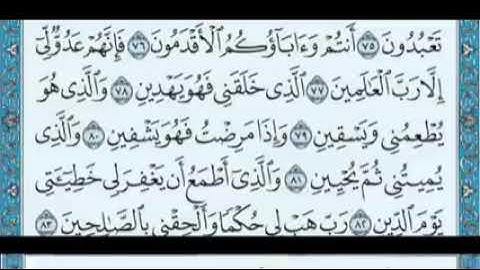 تَعْبُدُونَ ٧٥ أَنتُمْ وَءَابَآؤُكُمُ الْأَقْدَمُونَ ٧٦ فَإِنَّهُمْ عَدُوٌّ لِّىٓ
إِلَّا رَبَّ الْعَٰلَمِينَ ٧٧ الَّذِى خَلَقَنِى فَهُوَ يَهْدِينِ ٧٨ وَالَّذِى هُوَ
يُطْعِمُنِى وَيَسْقِينِ ٧٩ وَإِذَا مَرِضْتُ فَهُوَ يَشْفِينِ ٨٠ وَالَّذِى
يُمِيتُنِى ثُمَّ يُحْيِينِ ٨١ وَالَّذِىٓ أَطْمَعُ أَن يَغْفِرَ لِى خَطِيٓـَٔتِى
يَوْمَ الدِّينِ ٨٢ رَبِّ هَبْ لِى حُكْمًا وَأَلْحِقْنِى بِالصَّٰلِحِينَ ٨٣